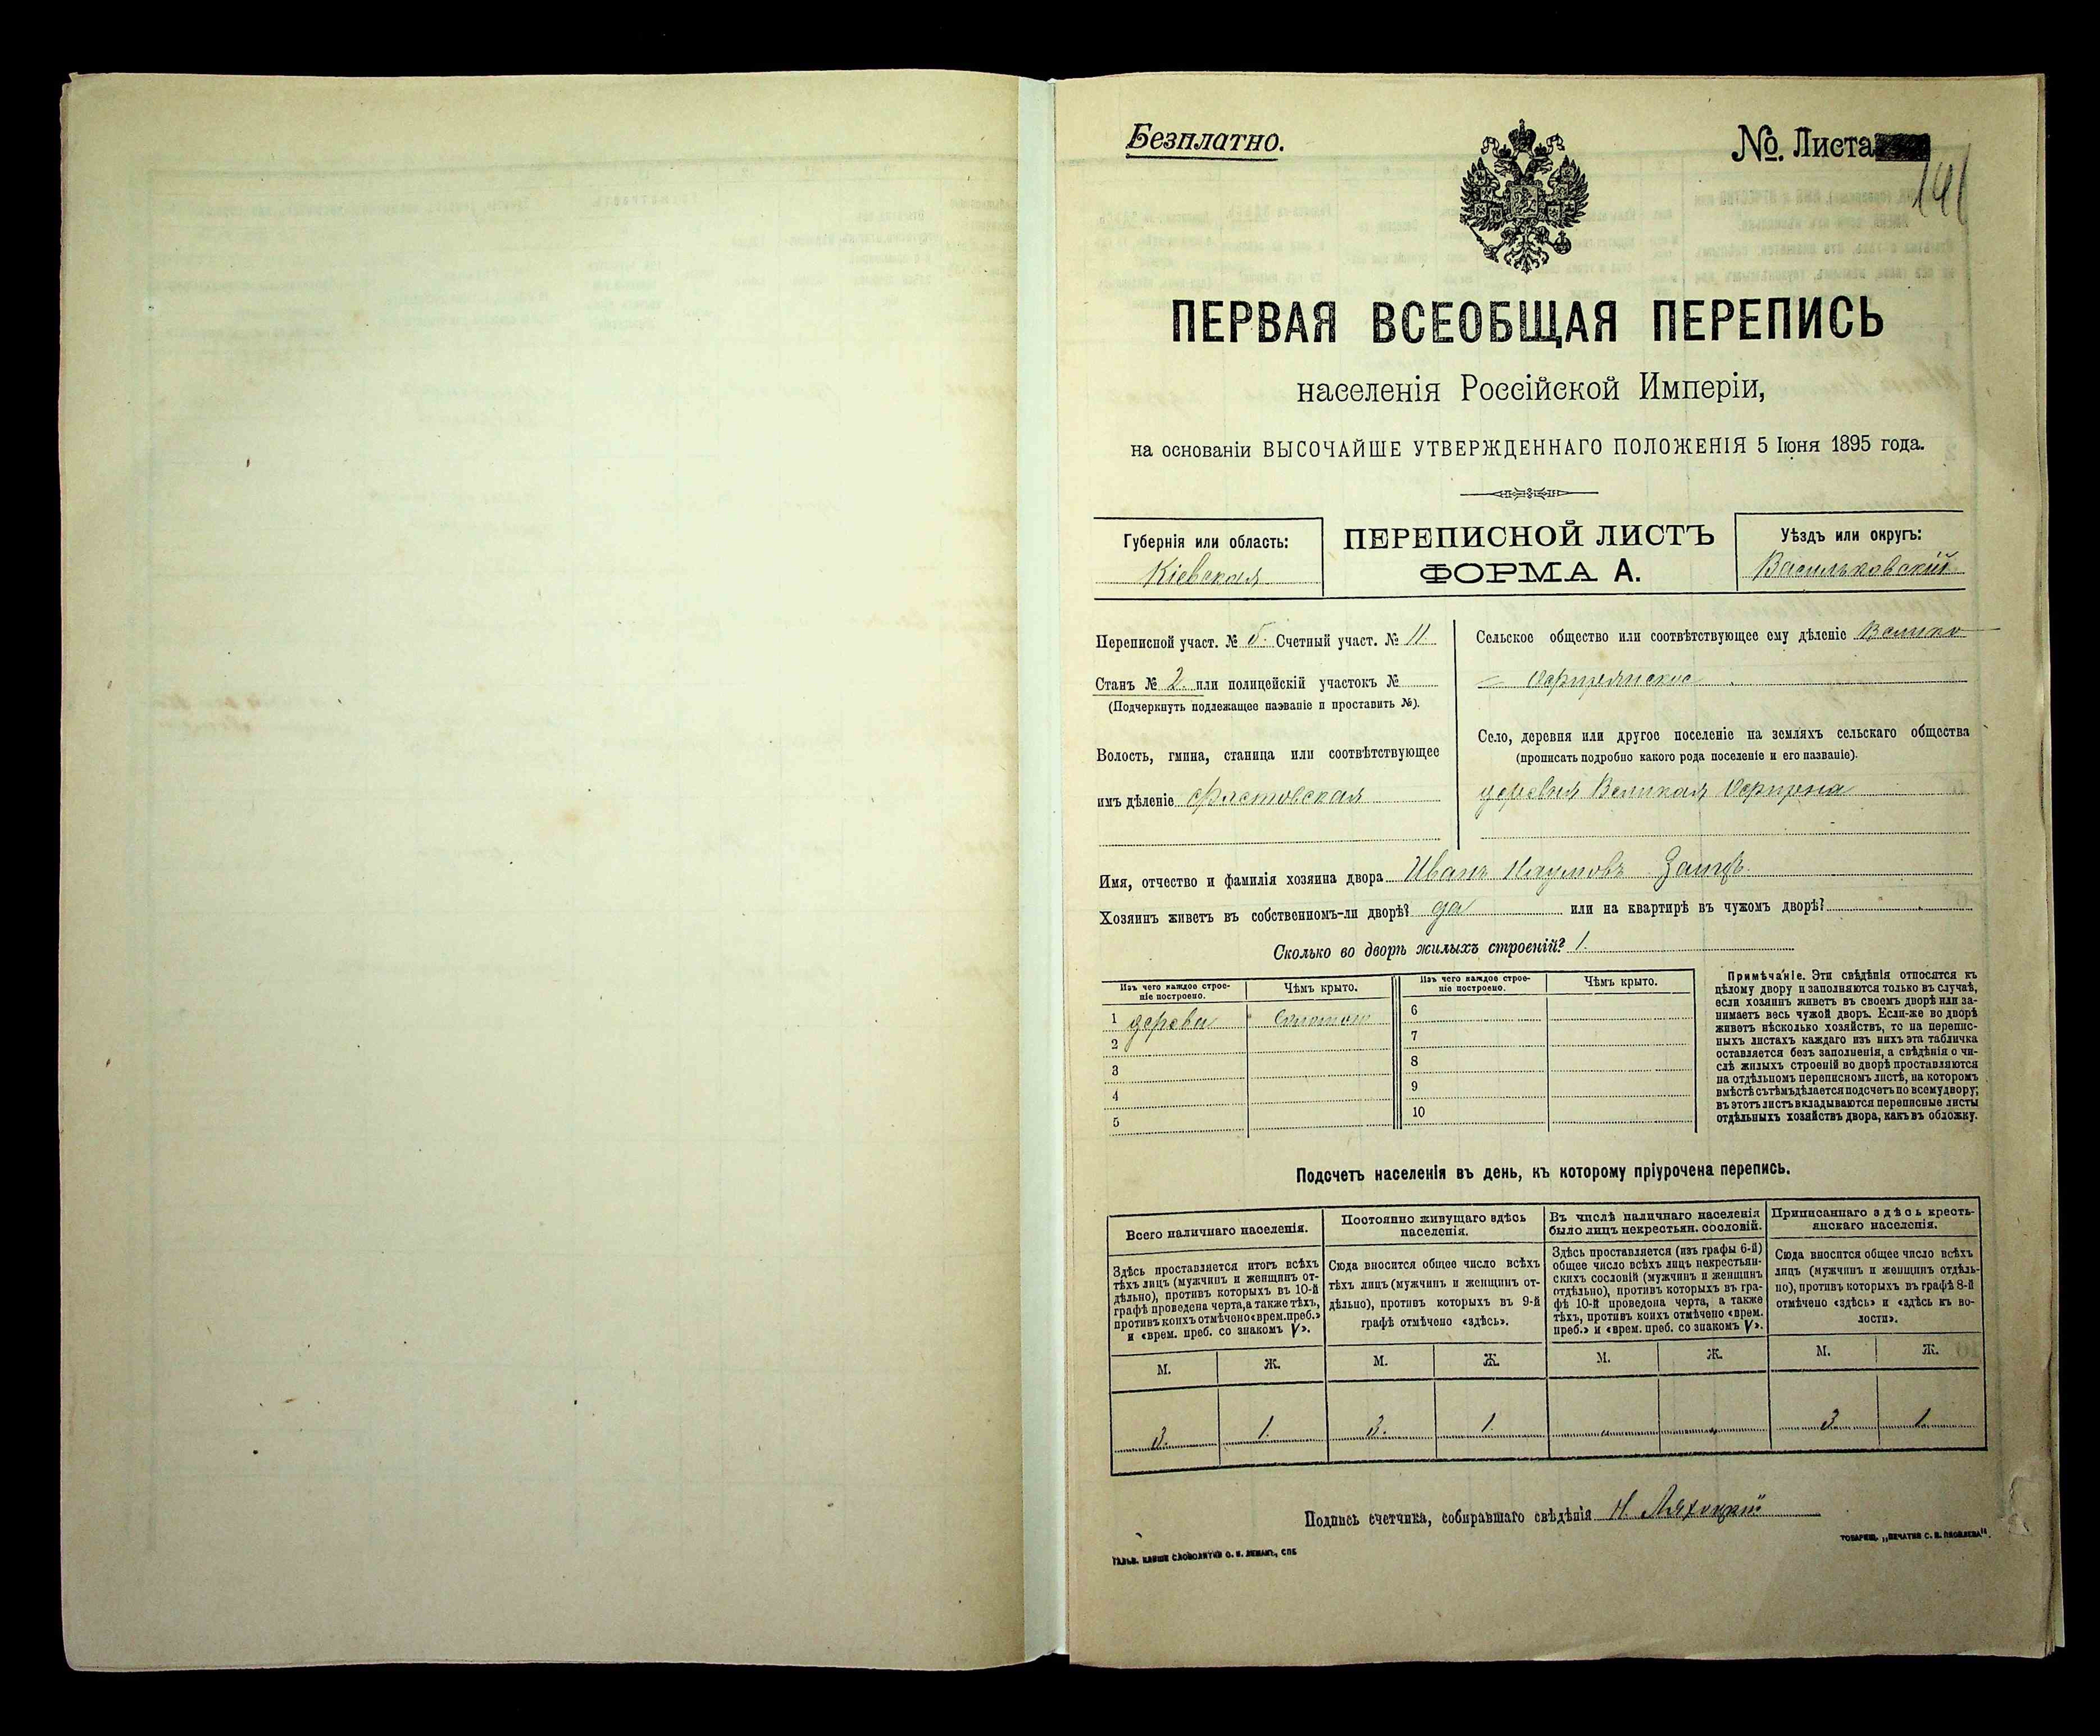 Безплатно.
№ Листа
141
ПЕРВАЯ ВСЕОБЩАЯ ПЕРЕПИСЬ
населенія Россійской Имперіи,
на основаніи ВЫСОЧАЙШЕ УТВЕРЖДЕННАГО ПОЛОЖЕНІЯ 5 Іюня 1895 года.
Губернія или область:
Кіевская
ПЕРЕПИСНОЙ ЛИСТЪ
ФОРМА А.
Уѣздъ или округъ:
Васильковскій
Переписной участ. № 5. Счетный участ. № 11
Станъ № 2. или полицейскій участокъ №
(Подчеркнуть подлежащее названіе и проставить №).
Волость, гмина, станица или соотвѣтствующее
имъ дѣленіе Фастовская
Сельское общество или соотвѣтствующее ему дѣленіе Велико
Село, деревня или другое поселеніе на земляхъ сельскаго общества
(прописать подробно какого рода поселеніе и его названіе).
деревня Великая
Имя, отчество и фамилія хозяина двора Иванъ Наумовъ
Хозяинъ живетъ въ собственномъ-ли дворѣ? да или на квартирѣ въ чужомъ дворѣ?
Сколько во дворѣ жилыхъ строеній? 1.
Изъ чего каждое строе-
ніе построено.
Чѣмъ крыто.
Изъ чего каждое строе-
ніе построено.
Чѣмъ крыто.
1 дерева Соломою
2
3
4
5
6
7
8
9
10
Примѣчаніе. Эти свѣдѣнія относятся къ
цѣлому двору и заполняются только въ случаѣ,
если хозяинъ живетъ въ своемъ дворѣ или за-
нимаетъ весь чужой дворъ. Если-же во дворѣ
живетъ нѣсколько хозяйствъ, то на перепис-
ныхъ листахъ каждаго изъ нихъ эта табличка
оставляется безъ заполненія, а свѣдѣнія о чи-
слѣ жилыхъ строеній во дворѣ проставляются
на отдѣльномъ переписномъ листѣ, на которомъ
вмѣстѣ съ тѣмъ дѣлается подсчетъ по всему двору;
въ этотъ листъ вкладываются переписные листы
отдѣльныхъ хозяйствъ двора, какъ въ обложку.
Подсчетъ населенія въ день, къ которому пріурочена перепись.
Всего наличнаго населенія.
Здѣсь проставляется итогъ всѣхъ
тѣхъ лицъ (мужчинъ и женщинъ от-
дѣльно), противъ которыхъ въ 10-й
графѣ проведена черта, а также тѣхъ,
противъ коихъ отмѣчено «врем. преб.»
и «врем. преб. со знакомъ V».
Постоянно живущаго здѣсь
населенія.
Сюда вносится общее число всѣхъ
тѣхъ лицъ (мужчинъ и женщинъ от-
дѣльно), противъ которыхъ въ 9-й
графѣ отмѣчено «здѣсь».
Въ числѣ наличнаго населенія
было лицъ некрестьян. сословій.
Здѣсь проставляется (изъ графы 6-й)
общее число всѣхъ лицъ некрестьян-
скихъ сословій (мужчинъ и женщинъ
отдѣльно), противъ которыхъ въ гра-
фѣ 10-й проведена черта, а также
тѣхъ, противъ коихъ отмѣчено «врем.
преб.» и «врем. преб. со знакомъ V».
Приписаннаго здѣсь кресть-
янскаго населенія.
Сюда вносится общее число всѣхъ
лицъ (мужчинъ и женщинъ отдѣль-
но), противъ которыхъ въ графѣ 8-й
отмѣчено «здѣсь» и «здѣсь къ во-
лости».
М. Ж. М. Ж. М. Ж. М. Ж.
3. 1. 3. 1. „ „ 3. 1.
Подпись счетчика, собиравшаго свѣдѣнія Н. Ляхоцкій